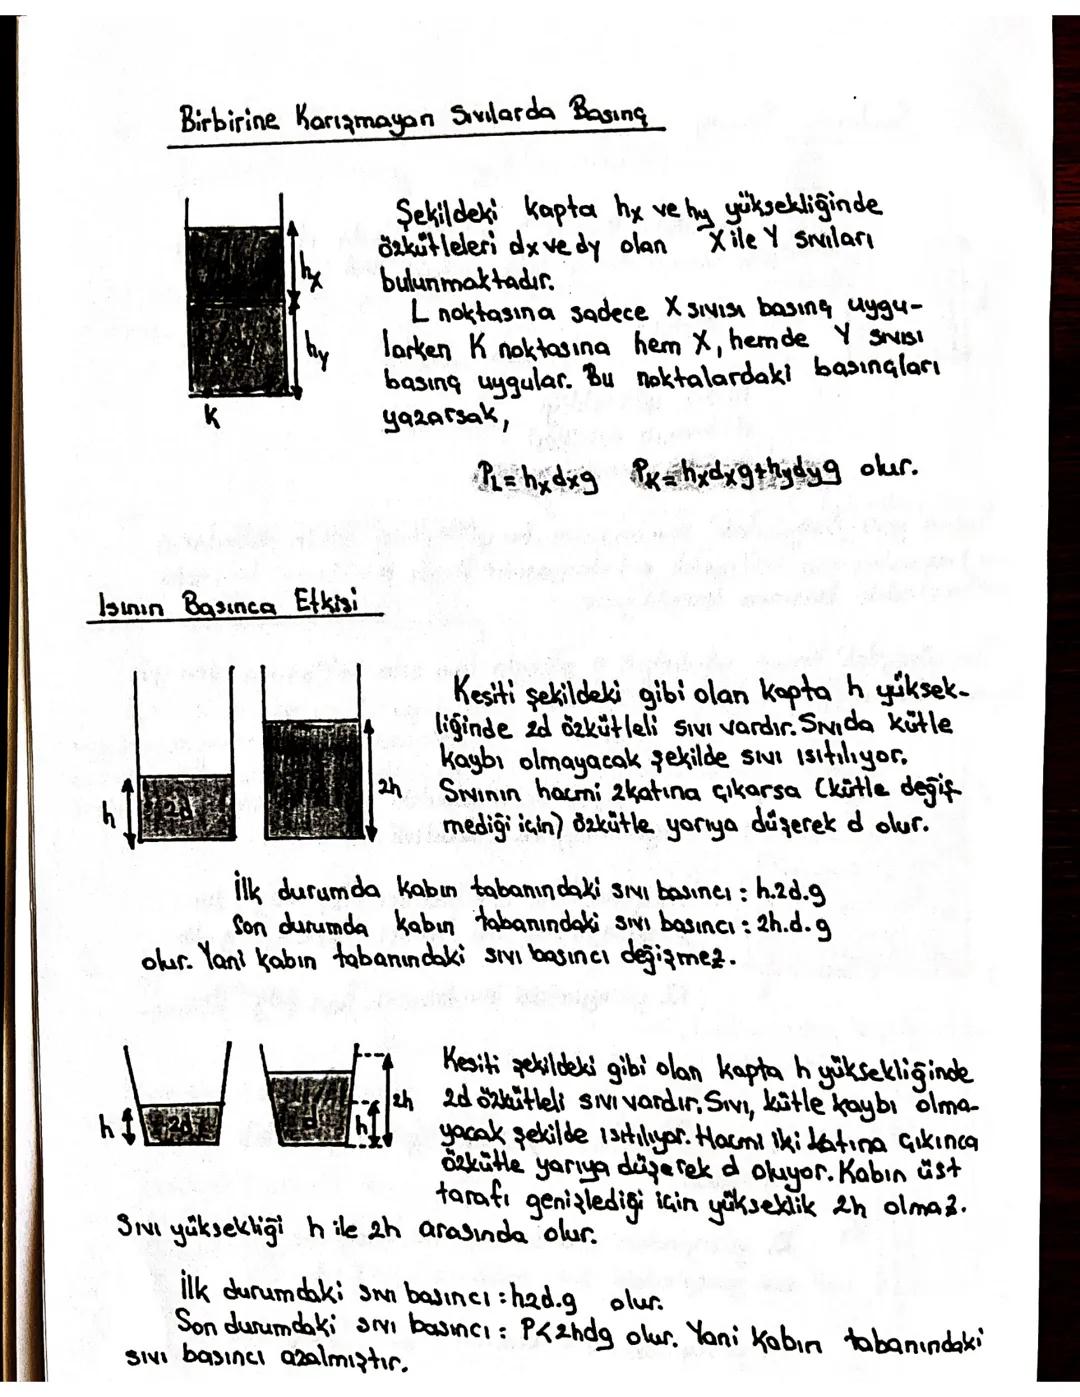 Birbirine Karışmayan Sıvılarda Basınç
hx
hy
K
Şekildeki kapta hx ve hy yüksekliğinde
özkütleleri dx ve dy olan X ile Y sıvıları
bulunmaktadır.
L noktasına sadece X sıvısı basınç uygu-
larken K noktasına hem X, hemde Y sıvısı
basınç uygular. Bu noktalardaki basınçları
yazarsak,
PL=hxdxg PK=hxdxg+hydyg olur.
Isının Basınca Etkisi
h
2d
2h
Kesiti şekildeki gibi olan kapta h yüksek-
liğinde 2d özkütleli sıvı vardır. Sıvıda kütle
kaybı olmayacak şekilde sıvı ısıtılıyor.
Sıvının hacmi 2katına çıkarsa (kütle değiş-
mediği için) özkütle yarıya düşerek d olur.
İlk durumda kabın tabanındaki sıvı basıncı : h.2d.g
Son durumda kabın tabanındaki sıvı basıncı : 2h.d.g
olur. Yani kabın tabanındaki sıvı basıncı değişmez.
h
2d
d
h
2h
Kesiti şekildeki gibi olan kapta h yüksekliğinde
2d özkütleli sıvı vardır. Sıvı, kütle kaybı olma-
yacak şekilde ısıtılıyor. Hacmi iki katına çıkınca
özkütle yarıya düşerek d oluyor. Kabın üst
tarafı genişlediği için yükseklik 2h olmaz.
Sıvı yüksekliği h ile 2h arasında olur.
İlk durumdaki sıvı basıncı : h2d.g olur.
Son durumdaki sıvı basıncı : P<2hdg olur. Yani kabın tabanındaki
sıvı basıncı azalmıştır.